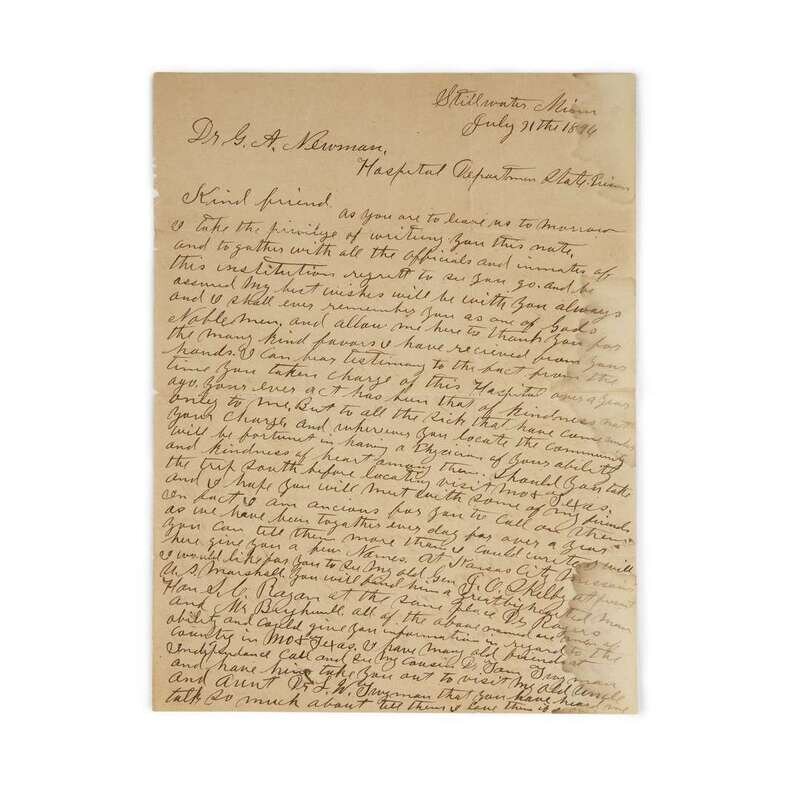 Stillwater Minn
July 21the 1894
Dr G. A. Newman,
Hospital Departmen State Prison
Kind friend
as you are to leave us to Morrow
I take the privilige of writing you this note,
and to gather with all the officials and inmates of
this institution regrett to see you go. and be
assured My best wishes will be with you always
and I shall ever remember you as one of Gods
Noble Men, and allow me here to thank you for
the many kind favors I have recieved from your
hands. I can bear testimony to the fact from the
time you taken charge of this Hospital over a year
ago. your ever act has been that of kindness not
only to me, But to all the sick that have came under
your charge, and wherever you locate the community
will be fortunet in having a Physician of your ability
and kindness of heart among them. Should you take
the trip South before locating visit Mo & Texas.
and I hope you will meet with some of my friends
In fact I am ancious for you to call on them
as we have been together ever day for over a year
you can tell them more than I could write I will
here give you a few Names. At Kansas City Missouri
I would like for you to see My old Gen J. O. Shelby at present
U. S. Marshall. you will find him a great big hearted man
Hon S. C. Ragan at the same place Dr Rogers
and Mr all of the above named are men of
ability and could give you information in regard to the
country in Mo & Texas. I have many old friends at
Independance Call and see my cousin Dr Twyman
and have him take you out to visit my old Uncle
and Aunt Dr L. W. Twyman that you have heard me
talk so much about tell them I love them